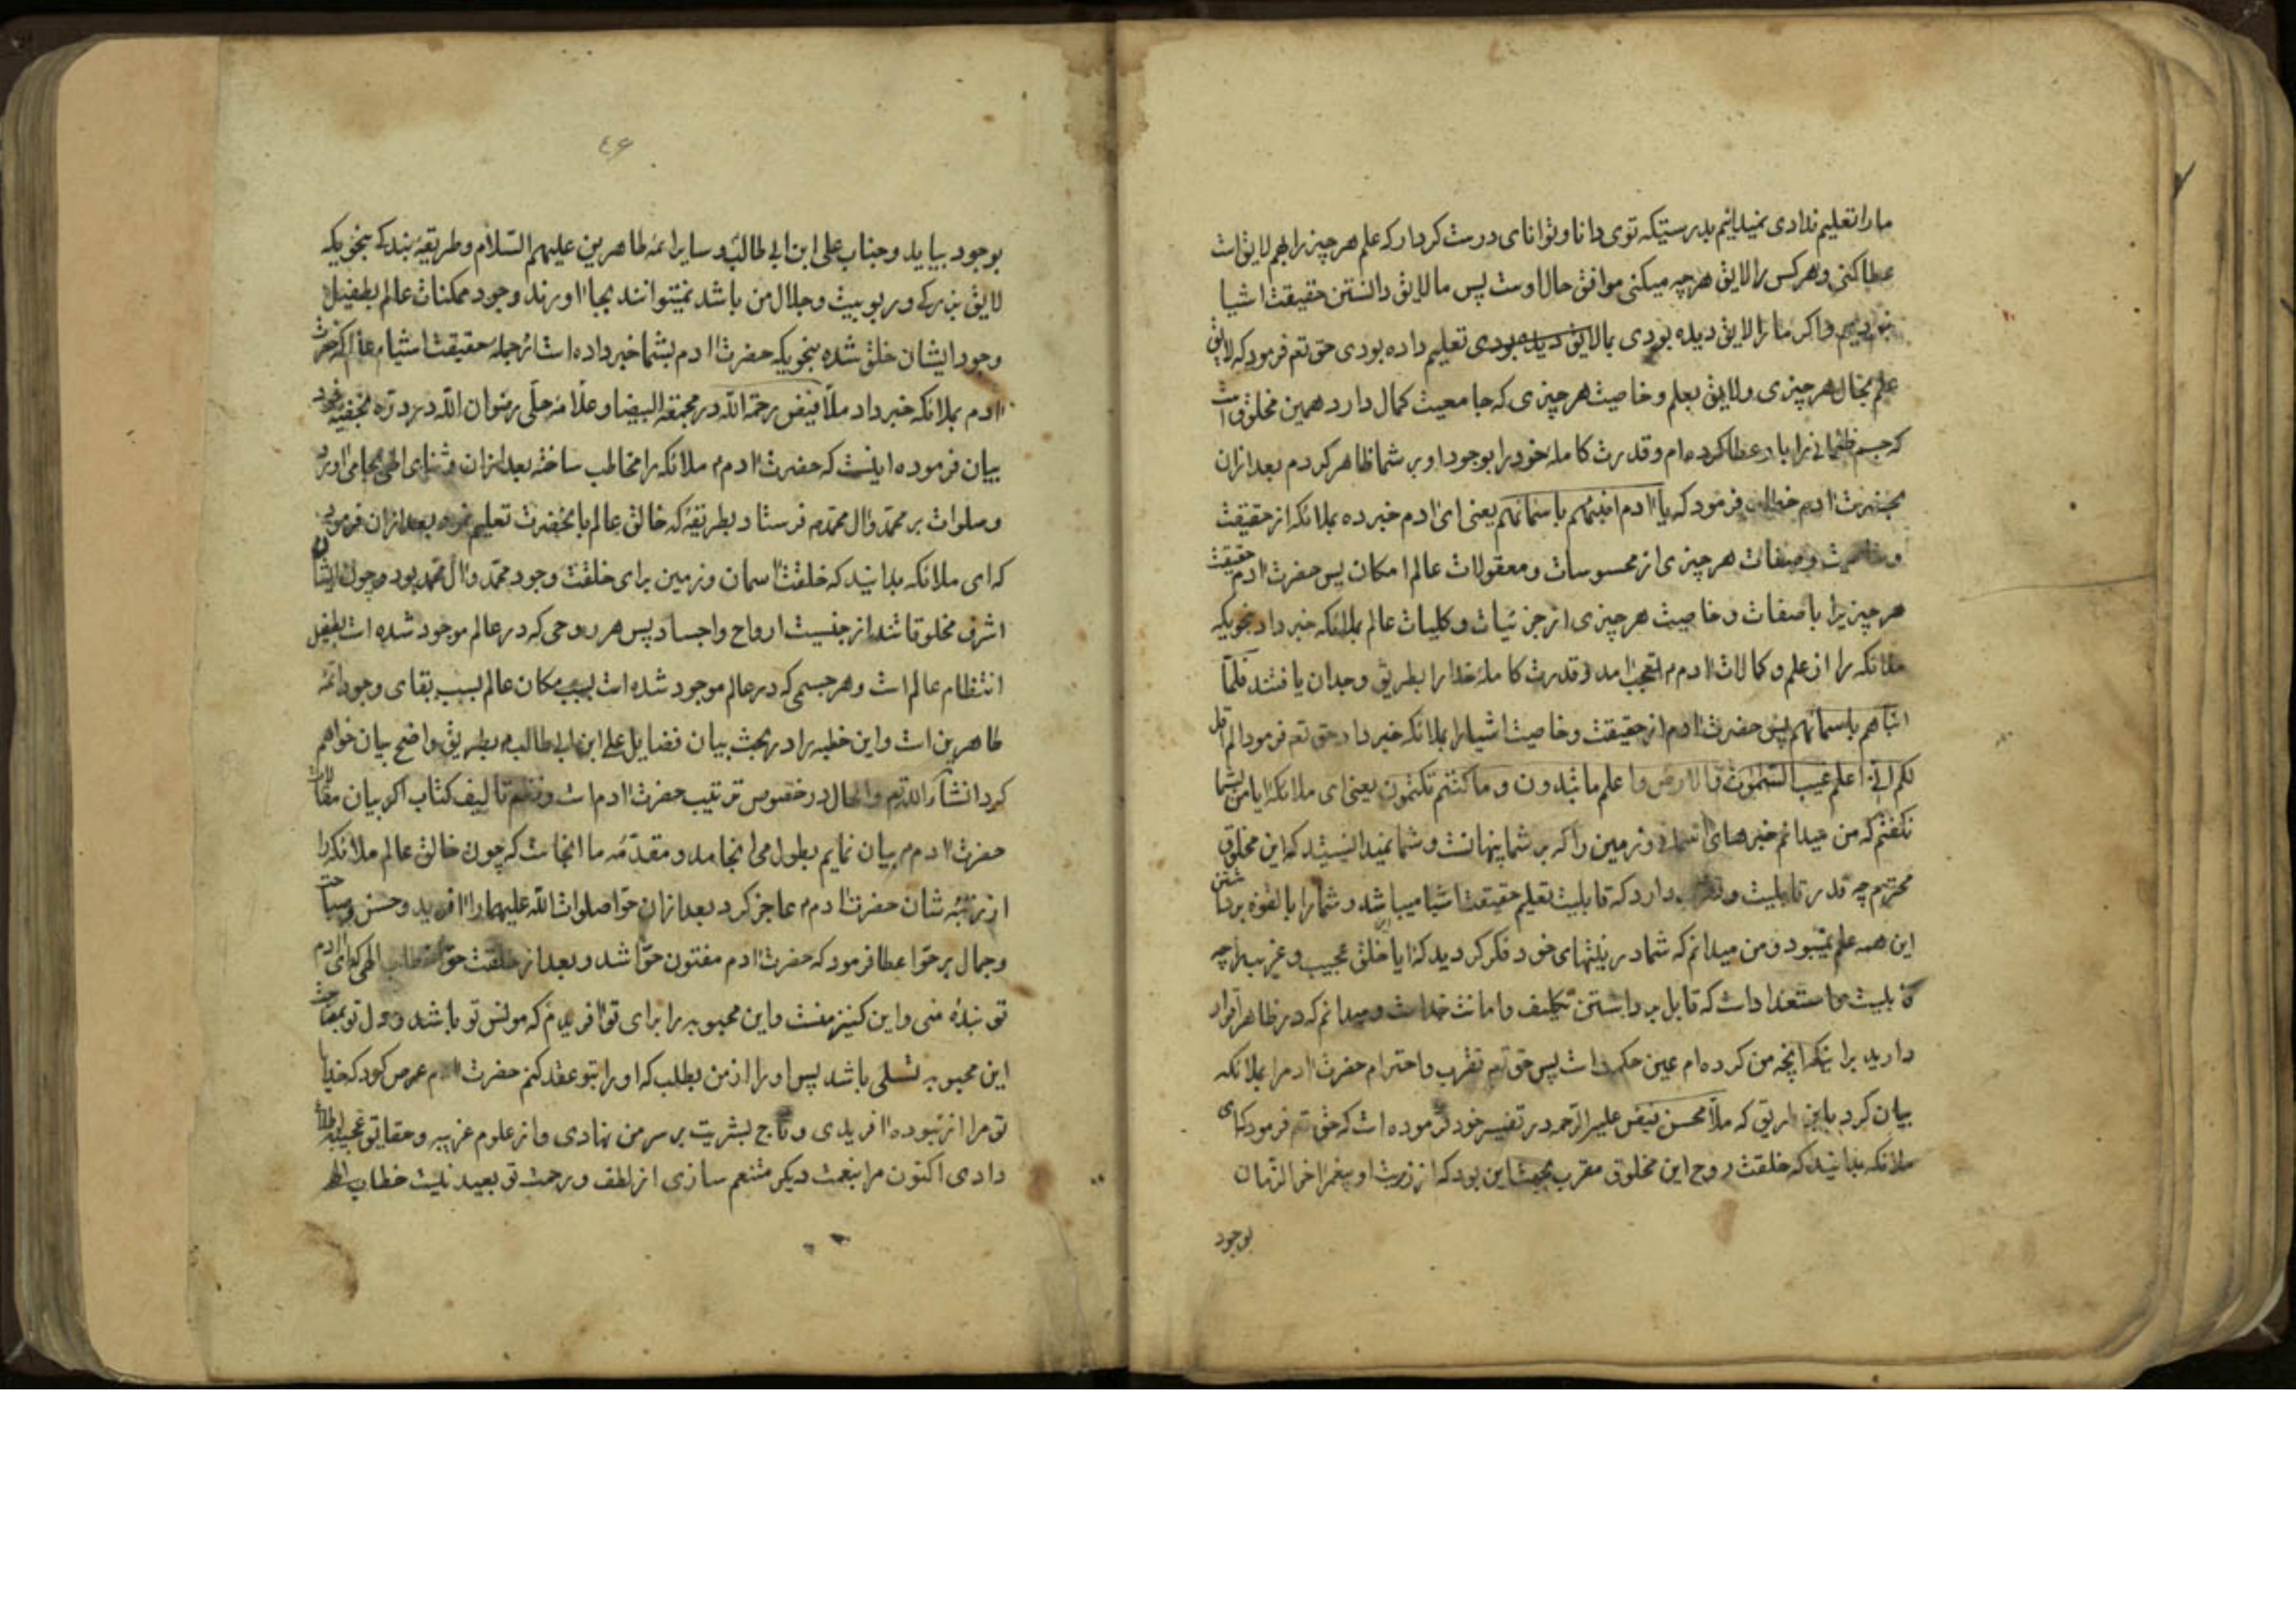 ما را تعلیم ندادی نمیدانیم بدرستیکه توی دانا و توانای درست کردار که علم هر چیز را بهم لایق است
عطا کنی و هر کس را لایق هر چه میکنی موافق حال اوست پس ما لایق دانستن حقیقت اشیا
نبودیم و اکر ما را لایق دیده بودی بما لایق دیده بودی تعلیم داده بودی حق تعم فرمود که لایق
علم بحال هر چیزی و لایق بعلم و خاصیت هر چیزی که جامعیت کمال دارد همین مخلوق است
که جسم ظلمانی را باو عطا کرده‌ام و قدرت کامله خود را بوجود او بر شما ظاهر کردم بعد ازان
بحضرت ادم خطاب فرمود که یا ادم انبئهم باسمائهم یعنی ای ادم خبر ده بملائکه از حقیقت
و خاصیت و صفات هر چیزی از محسوسات و معقولات عالم امکان پس حضرت ادم حقیقت
هر چیز یرا با صفات و خاصیت هر چیزی از جزئیات و کلیات عالم بملائکه خبر داد بنحویکه
ملائکه را از علم و کمالات ادم م تعجب امد و قدرت کامله خدا را بطریق وجدان یافتند فلمّا
انباهم باسمائهم پس حضرت ادم از حقیقت و خاصیت اشیا را بملائکه خبر داد حق تعم فرمود الم اقل
لکم انی اعلم غیب السّموت و الارض و اعلم ما تبدون و ما کنتم تکتمون یعنی ای ملائکه ایا من بشما
نکفتم که من میدانم خبرهای اسمان و زمین را که بر شما پنهانست و شما نمیدانستید که این مخلوق
محترم چه قدر قابلیت و تقرب دارد که قابلیت تعلیم حقیقت اشیا میباشد و شما را بالقوه برداشتن
این همه علم نمیبود و من میدانم که شما در نیتهای خود فکر کردید که ایا این خلق عجیب و غریب را چه
قابلیت و استعداد است که قابل برداشتن تکلیف و امانت خداست و میدانم که در ظاهر اقرار
دارید براینکه انچه من کرده‌ام عین حکمت است پس حق تعم تقرب و احترام حضرت ادم را بملائکه
بیان کرد باین طریق که ملّا محسن فیض علیه الرّحمه در تفسیر خود فرموده است که حق تعم فرمود که ای
ملائکه بدانید که خلقت روح این مخلوق مقرب بجهت این بود که از ذریت او پیغمبر اخر الزّمان
بوجود
٤۶
بوجود بیاید و جناب علی ابن ابی طالب و سایر ائمّه طاهرین علیهم السّلام و طریقه بندکی بنحویکه
لایق بزرکی و ربوبیت و جلال من باشد نمیتوانند بجا اورند و وجود ممکنات عالم بطفیل
وجود ایشان خلق شده بنحویکه حضرت ادم بشما خبر داده است از جمله حقیقت اشیا حضرت
ادم بملائکه خبر داد ملّا فیض رحمة اللّه در محجة البیضا و علّامه حلّی رضوان اللّه در درّه نجفیّه خود
بیان فرموده اینست که حضرت ادم م ملائکه را مخاطب ساخته بعد ازان ثنای الهی بجا می اورد
و صلوات بر محمّد و ال محمّد م فرستاد بطریقه که خالق عالم با نحضرت تعلیم نموده بعد ازان فرمود
که ای ملائکه بدانید که خلقت اسمان و زمین برای خلقت وجود محمّد و ال محمّد بود و چون ایشان
اشرف مخلوقاتند از جنسیت ارواح و اجساد پس هر روحی که در عالم موجود شده است بطفیل
انتظام عالم است و هر جسمی که در عالم موجود شده است بسبب مکان عالم بسبب بقای وجود ائمّه
طاهرین است و این خطبه را در بحث بیان فضایل علی ابن ابی طالب م بطریق واضح بیان خواهم
کرد انشاء اللّه تعم و الحال در خصوص ترتیب حضرت ادم است و نظم تالیف کتاب اکر بیان مقالات
حضرت ادم م بیان نمایم بطول می انجامد و مقدّمه ما انجاست که چون خالق عالم ملائکه را
از رتبه شان حضرت ادم م عاجز کرد بعد ازان حوّا صلوات اللّه علیهما را افرید و حسن و صباحت
و جمال بر حوّا عطا فرمود که حضرت ادم مفتون حوّا شد و بعد از خلقت حوّا خطاب الهی که ای ادم
تو بندۀ منی و این کنیز منست و این محبوبه را برای تو افریدم که مونس تو باشد و دل تو بمصاحبت
این محبوبه تسلی باشد پس او را از من بطلب که او را بتو عقد کنم حضرت ادم عرض کرد که خدایا
تو مرا از نبوده افریدی و تاج بشریت بر سر من نهادی و از علوم غریبه و حقایق عجیبه اطلاع
دادی اکنون مرا بنعمت دیکر متنعم سازی از لطف و رحمت تو بعید نیست خطاب اله